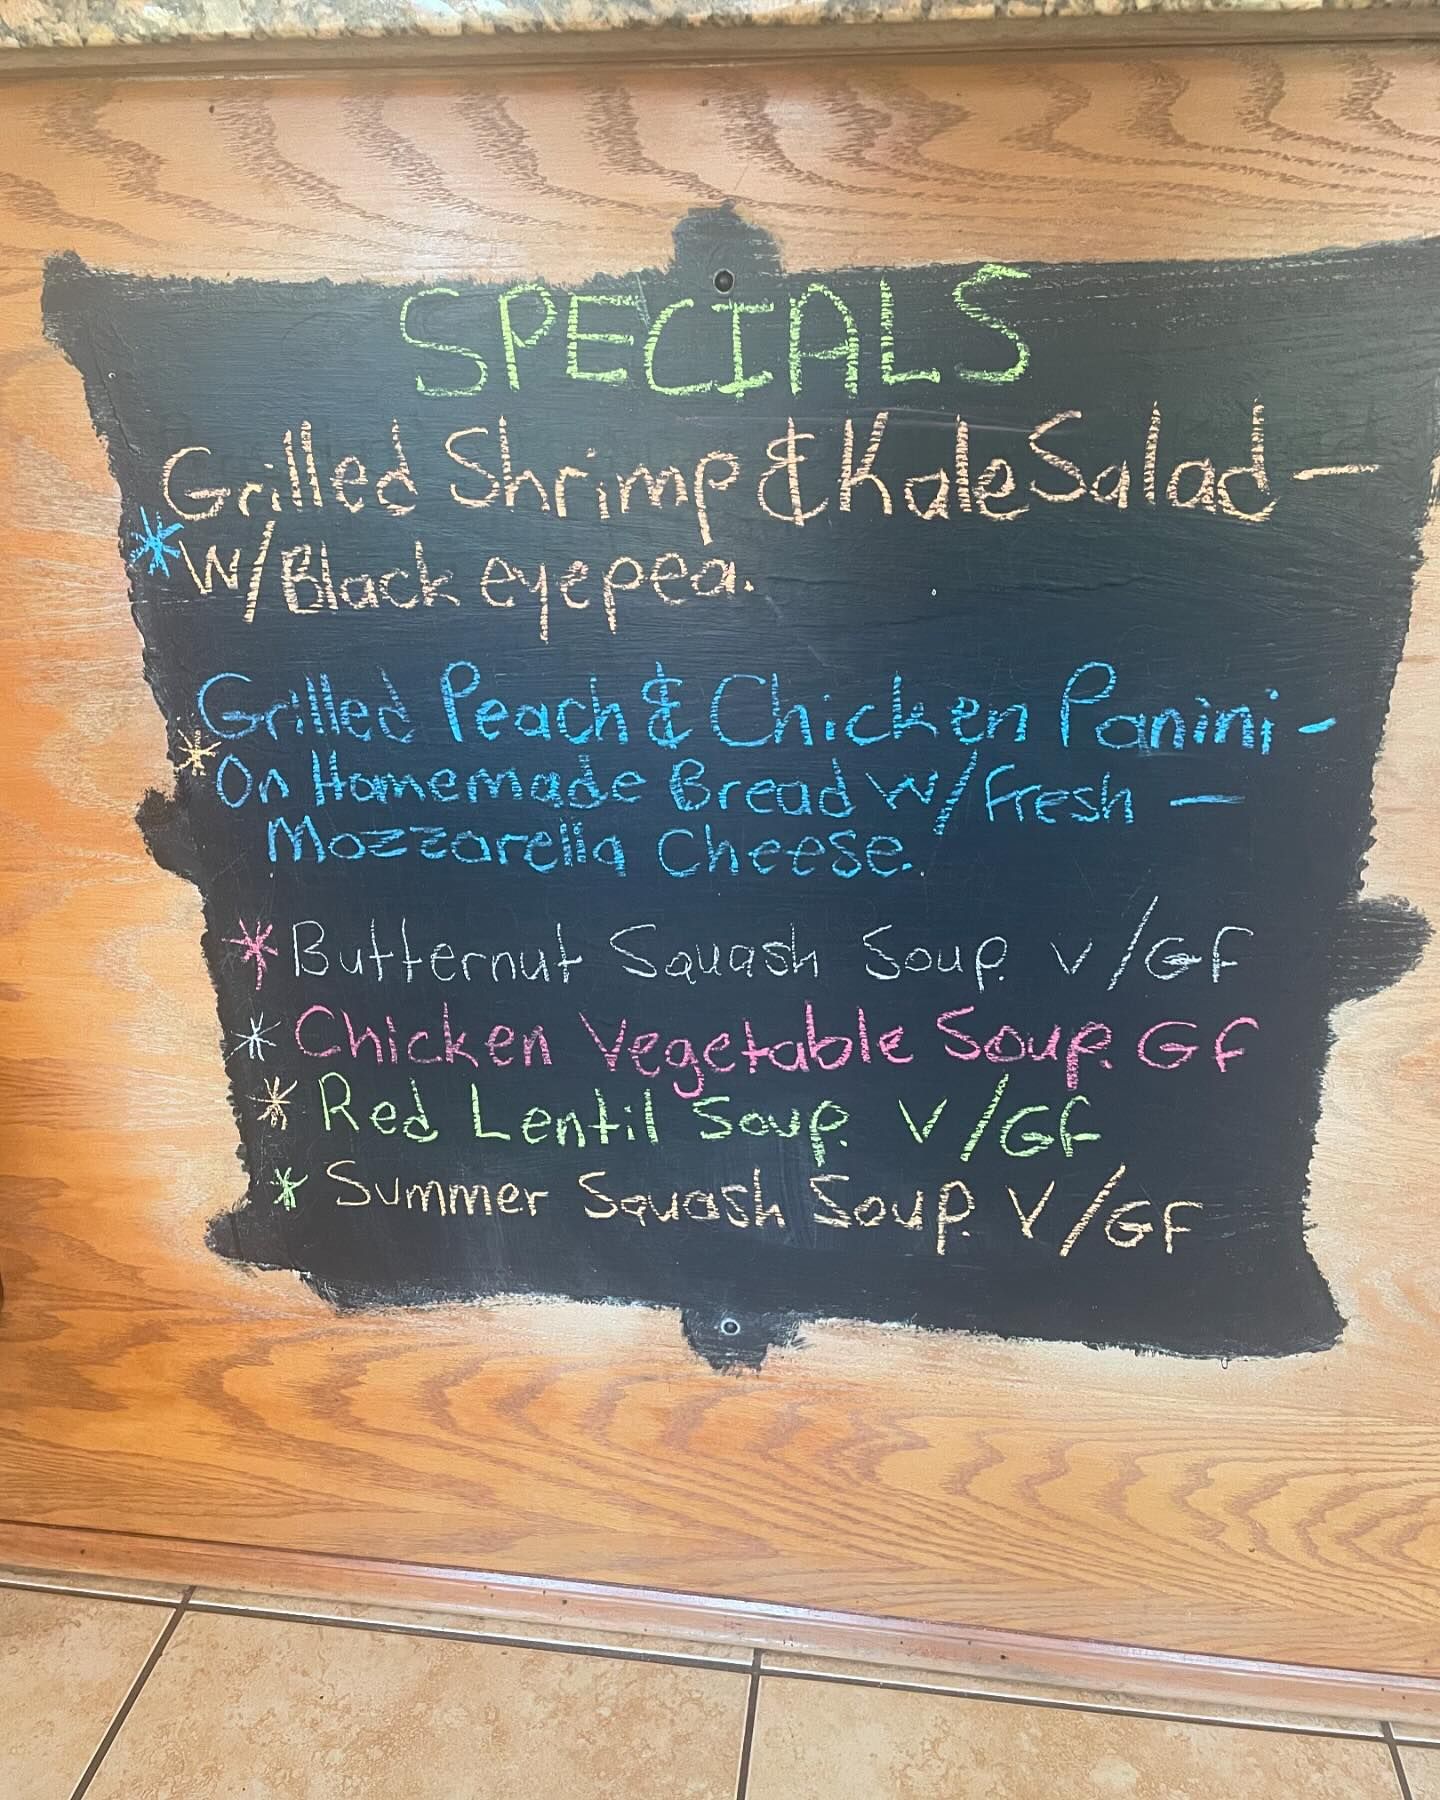 SPECIALS
Grilled Shrimp & Kale Salad -
* W/Black eyepea.
Grilled Peach & Chicken Panini -
* On Homemade Bread W/Fresh -
Mozzarella Cheese.
* Butternut Squash Soup. V/GF
* Chicken Vegetable Soup. GF
* Red Lentil Soup. V/GF
* Summer Squash Soup. V/GF